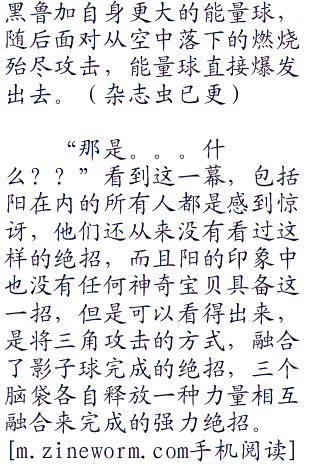 黑鲁加自身更大的能量球，
随后面对从空中落下的燃烧
殆尽攻击，能量球直接爆发
出去。（杂志虫已更）
“那是。。。什
么？？”看到这一幕，包括
阳在内的所有人都是感到惊
讶，他们还从来没有看过这
样的绝招，而且阳的印象中
也没有任何神奇宝贝具备这
一招，但是可以看得出来，
是将三角攻击的方式，融合
了影子球完成的绝招，三个
脑袋各自释放一种力量相互
融合来完成的强力绝招。
[m.zineworm.com手机阅读]